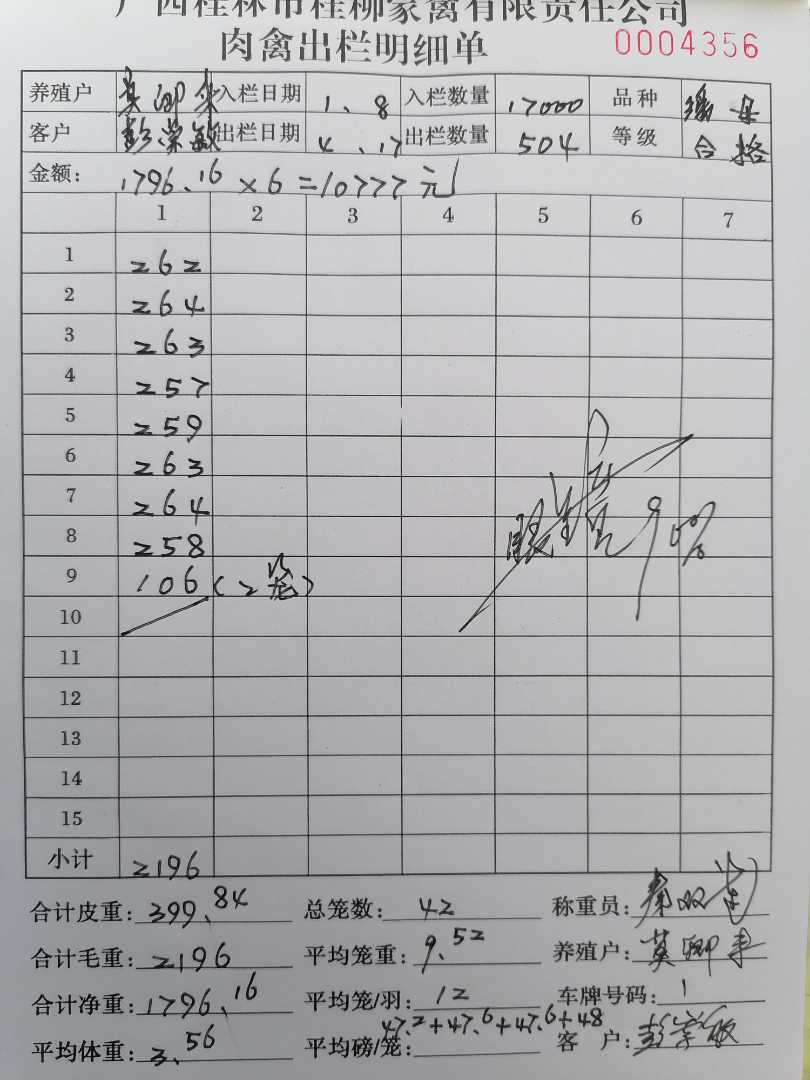 广西桂林市桂柳家禽有限责任公司
肉禽出栏明细单 0004356
养殖户 莫卿来 入栏日期 1.8 入栏数量 17000 品种
客户 彭荣敏 出栏日期 4.17 出栏数量 504 等级 合格
金额： 1796.16×6=10777元
1 2 3 4 5 6 7
1 262
2 264
3 263
4 257
5 259
6 263
7 264
8 258
9 106(2笼)
10
11
12
13
14
15
90%
小计 2196
合计皮重：399.84 总笼数：42 称重员：
合计毛重：2196 平均笼重：9.52 养殖户：莫卿来
合计净重：1796.16 平均笼/羽：12 车牌号码：1
平均体重：3.56 平均磅/笼：47.2+47.6+47.6+48 客 户：彭荣敏